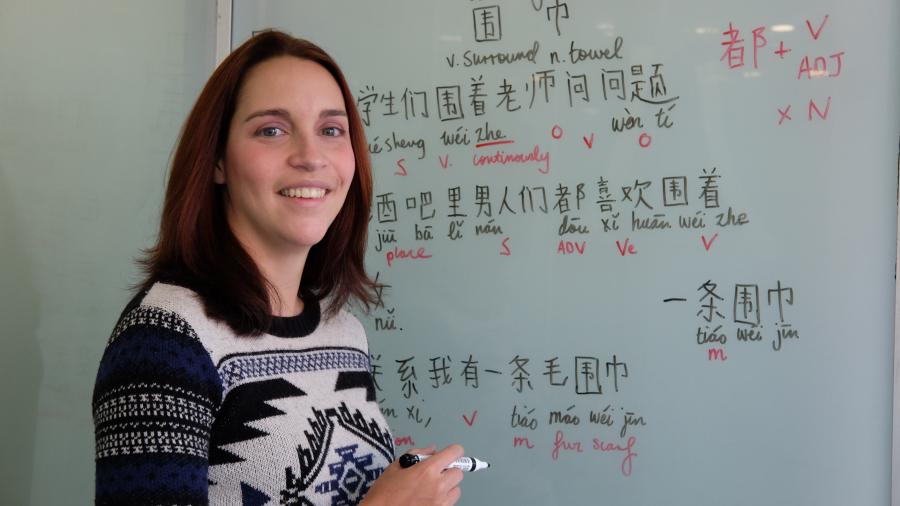 围 巾
v. Surround n. towel
学生们围着老师问问题
sheng wéi zhe wèn tí
S V. continously O V O
酒吧里男人们都喜欢围着
jiǔ bā lǐ nán dōu xǐ huān wéi zhe
place S ADV Ve V
女
nǚ.
系我有一条毛围巾
xi, tiáo máo wéi jīn
V m fur scarf
都 + V
ADJ
x N
一条围巾
tiáo wéi jīn
m